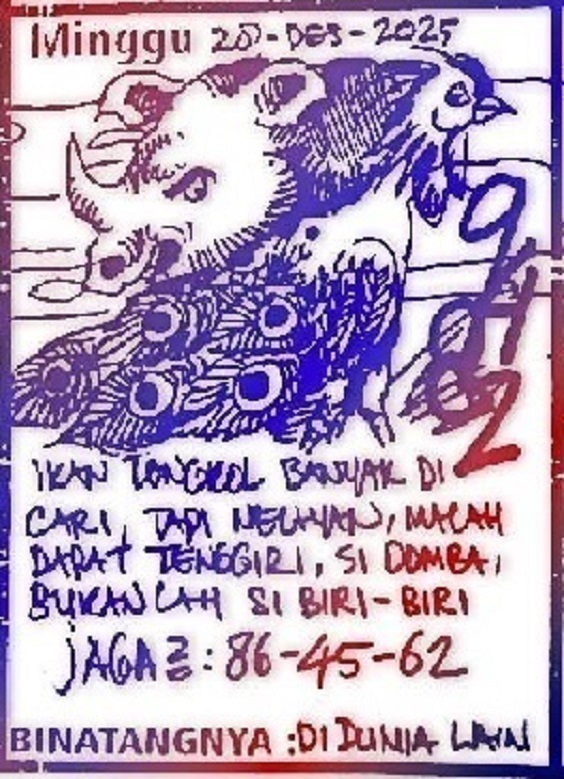 Minggu 28-DES-2025
9
4
8
2
IKAN TONGKOL BANYAK DI
CARI, TAPI NELAYAN, MALAH
DAPAT TENGGIRI, SI DOMBA,
BUKANLAH SI BIRI-BIRI
JAGA2 : 86-45-62
BINATANGNYA :DI DUNIA LAIN